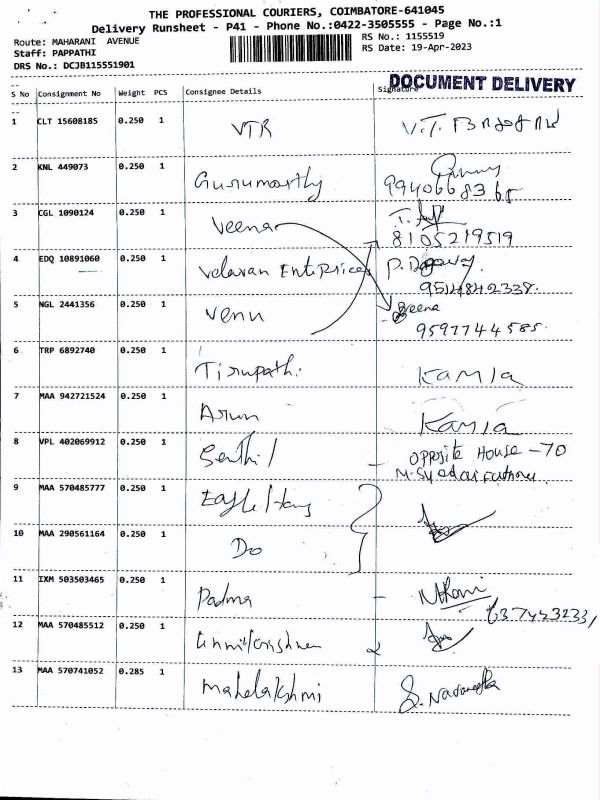 THE PROFESSIONAL COURIERS, COIMBATORE-641045
Delivery Runsheet - P41 - Phone No.:0422-3505555 - Page No.:1
Route: MAHARANI AVENUE
RS No.: 1155519
Staff: PAPPATHI
RS Date: 19-Apr-2023
DRS No.: DCJB115551901
DOCUMENT DELIVERY
S No Consignment No Weight PCS Consignee Details Signature
1 CLT 15608185 0.250 1 VTR V.T.
2 KNL 449073 0.250 1 Gurumoorthy
9940668368
3 CGL 1090124 0.250 1 Veena
8105219519
4 EDQ 10891060 0.250 1 Velavan Enterprices
9514842338.
5 NGL 2441356 0.250 1 Venu Beena
9597744585.
6 TRP 6892740 0.250 1 Tirupathi. Kamla
7 MAA 942721524 0.250 1 Arun Kamla
8 VPL 402069912 0.250 1 Senthil - opposite House - 70
9 MAA 570485777 0.250 1 Eagle
10 MAA 290561164 0.250 1 Do
11 IXM 503503465 0.250 1 Padma -
12 MAA 570485512 0.250 1
13 MAA 570741052 0.285 1 Mahalakshmi